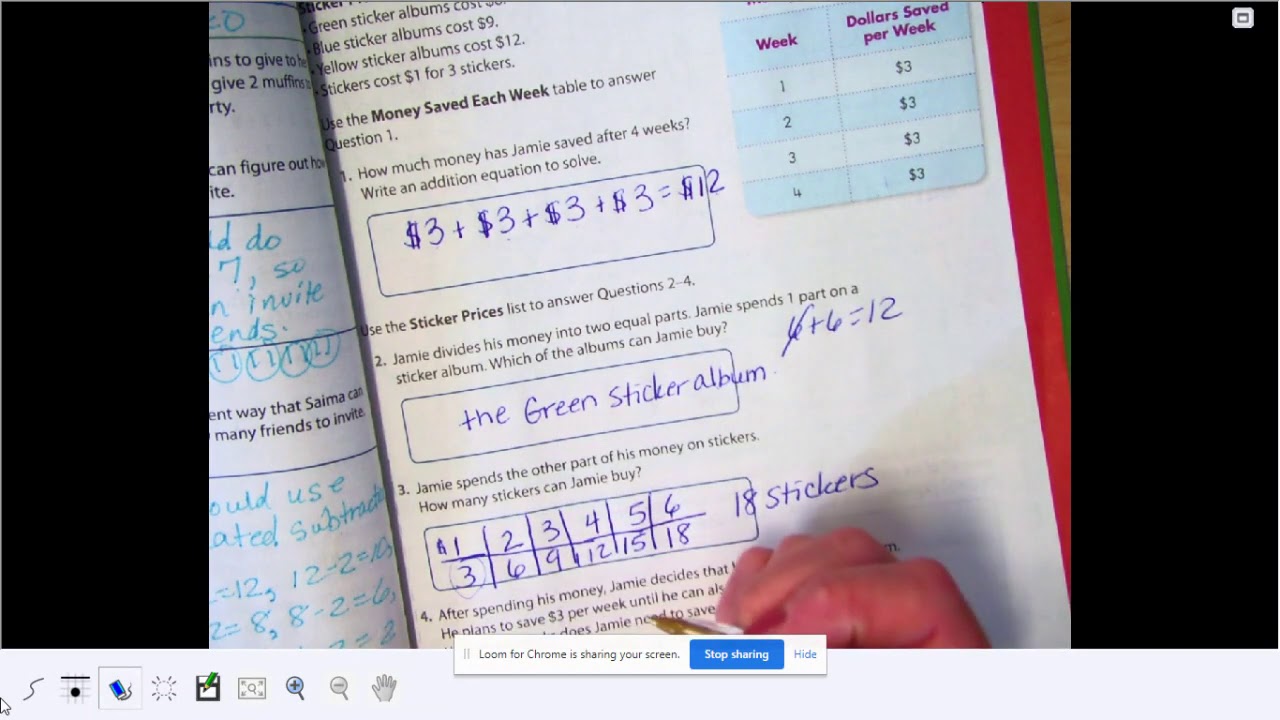 Green sticker albums cost
Blue sticker albums cost $9.
Yellow sticker albums cost $12.
Stickers cost $1 for 3 stickers.
Use the Money Saved Each Week table to answer
Question 1.
1. How much money has Jamie saved after 4 weeks?
Write an addition equation to solve.
$3 + $3 + $3 + $3 = $12
Week Dollars Saved
per Week
1 $3
2 $3
3 $3
4 $3
Use the Sticker Prices list to answer Questions 2–4.
2. Jamie divides his money into two equal parts. Jamie spends 1 part on a
sticker album. Which of the albums can Jamie buy?
6+6=12
the Green sticker album
3. Jamie spends the other part of his money on stickers.
How many stickers can Jamie buy?
$1 2 3 4 5 6
3 6 9 12 15 18
18 stickers
4. After spending his money, Jamie decides that
He plans to save $3 per week until he can
does Jamie need to save
ins to give to
give 2 muffins
rty.
can figure out
ite.
ld do
7, so
n invite
ends.
ent way that Saima can
many friends to invite.
ould use
ated subtract
=12, 12-2=10,
=8, 8-2=6,
Loom for Chrome is sharing your screen. Stop sharing Hide